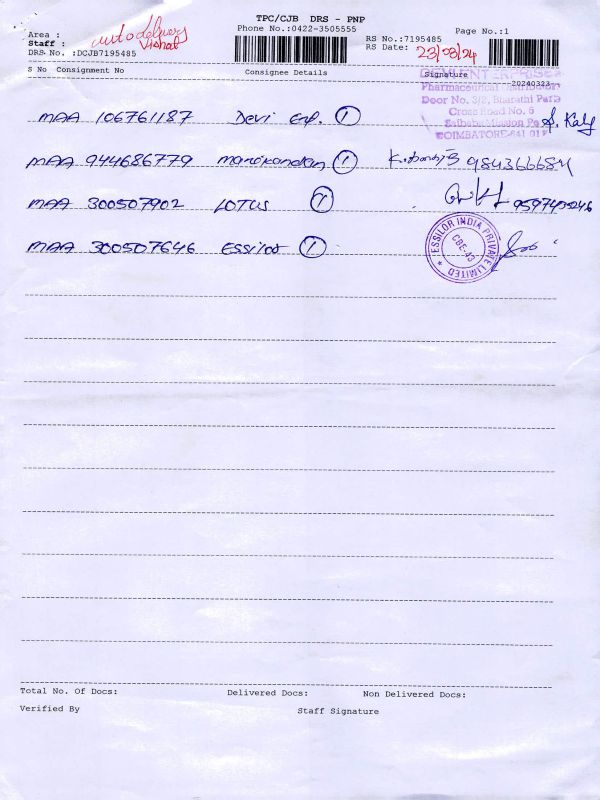 TPC/CJB DRS - PNP
Phone No.:0422-3505555
Page No.:1
Area :
Staff :
auto delivery
Vishal
RS No.:7195485
RS Date: 23/03/24
DRS No. :DCJB7195485
S No Consignment No Consignee Details Signature
20240323
Pharmaceutical Distributors
Door No. 3/2, Bharathi Park
Cross Road No. 6
Saibaba Mission Po
COIMBATORE-641 011
MAA 106761187 Devi Enp. 1
MAA 944686779 Manikandan 1
MAA 300507902 LOTUS 1
MAA 300507646 Essilor 1
ESSILOR INDIA PRIVATE LIMITED
CBE-43
Total No. Of Docs: Delivered Docs: Non Delivered Docs:
Verified By Staff Signature